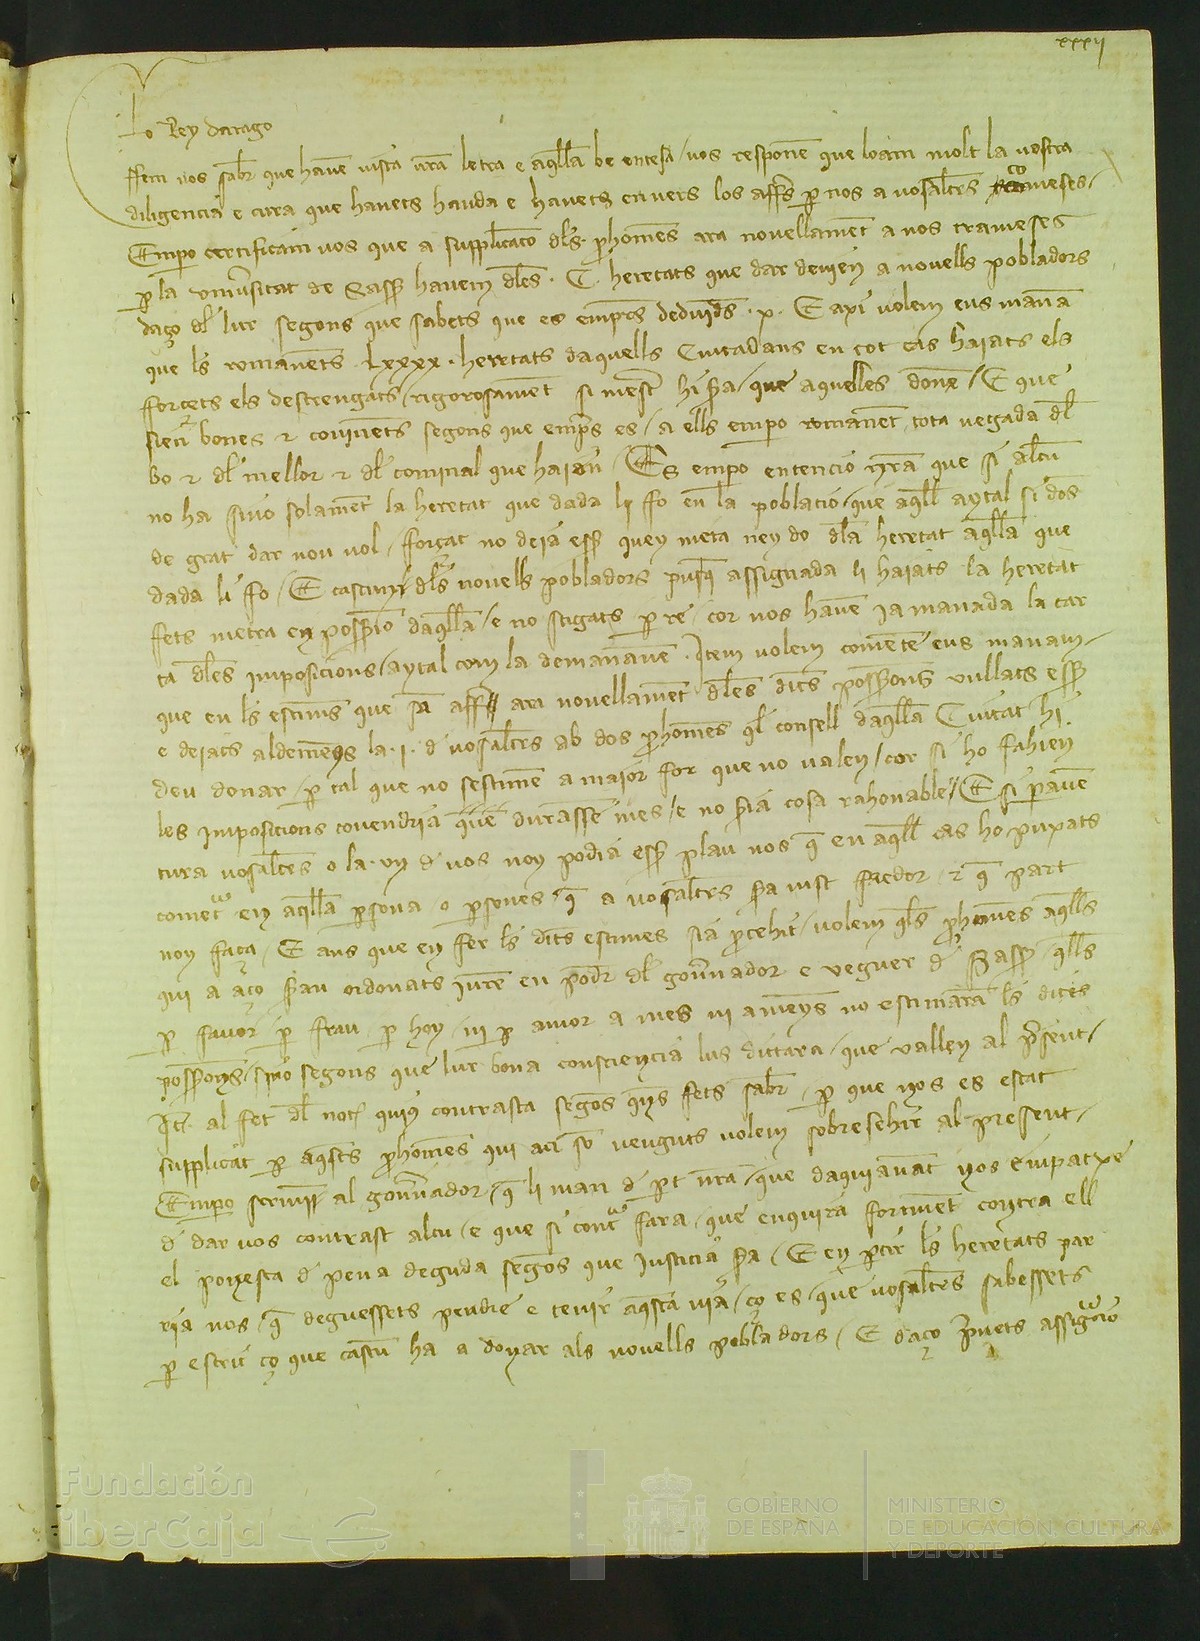 xxxij
Lo Rey darago
ffem vos saber que havem vista vra letra e aqlla be entesa / vos responem que loam molt la vostra
diligencia e cura que havets hauda e havets envers los affers p nos a vosaltres comeses /
Empo certificam vos que a supplicacio dls prohomens ara novellament a nos trameses
p la universitat de Sasser havem dles . C . heretats que dar devien a novells pobladors
daço dl lur segons que sabets que es empres deduides . x . E axi volem eus manam
que ls romanents . Lxxxx . heretats daquells Ciutadans en tot cas haiats els
forcets els destrengats / rigorosament si mester hi sera / que aquelles donen / E que
sien bones et covinents segons que empres es / a ells empo romanent tota vegada dl
bo et dl mellor et dl cominal que haien / Es empo entencio nra que si alcu
no ha sino solament la heretat que dada li fo en la poblacio / que aqll aytal si dos
de grat dar non vol / forçat no deia esser quey meta ney do dla heretat aqlla que
dada li fo / E cascun dls novells pobladors pusq assignada li haiats la heretat
fets metra en possessio daqlla / e no stigats p re / cor nos havem ia manada la car
ta dles imposicions / aytal com la demanaven . Item volem cometem eus manam /
que en ls estims que fa affer ara novellament dles dits possessions vullats esser
e deiats aldemenys la . i . d vosaltres ab dos prohomens ql consell daqlla Ciutat hi
deu donar / p tal que no sestimen a maior for que no valen / cor si ho fahien
les imposicions covendria quen durassen mes / e no seria cosa rahonable / E si p aven
tura vosaltres o la . un d vos noy podia esser plau nos q en aqll cas ho puxats
cometre en aqlla persona o persones q a vosaltres sera vist faedor et q part
noy faça / E ans que en fer ls dits estimes sia procehit / volem qls prohomens aqlls
qui a aço seran ordonats iuren en poder dl governador e veguer d Sasser / qlls
p favor p frau p hoy / ni p amor a mes ni a menys no estimaran ls dites
possessions / sino segons que lur bona consciencia lus dictara / que vallen al present /
Item al fet dl not quius contrasta segons quns fets saber / p que nos es estat
supplicat p aqsts prohomens qui aci son venguts volem sobresehir al present /
Empero scrivim al governador / q li man d part nra / que daqui avant nos empatxe
d dar vos contrast alcu / e que si contra fara / que enquira fortment contra ell
el ponesca d pena deguda segons que iusticia sera / E en pertir ls heretats par
ria nos / q deguessets pendre e tenir aqsta via / ço es / que vosaltres sabessets
p escrit ço que cascu ha a donar als novells pobladors / E daço